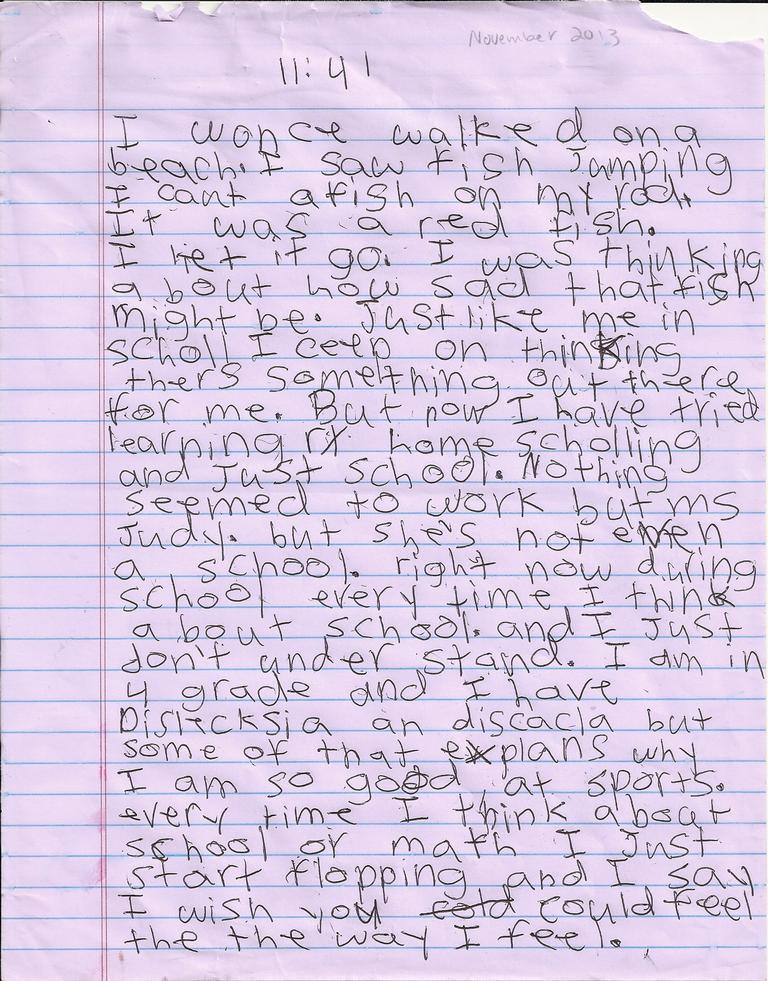 November 2013
11:41
I wonce walked on a
beach. I saw fish Jamping
I cant a fish on my rod.
It was a red fish.
I let it go. I was thinking
a bout how sad that fish
might be. Just like me in
scholl I ceep on thinking
thers something out there
for me. But now I have tried
learning rx home scholling
and Just school. Nothing
seemed to work but ms
Judy. but she's not even
a school. right now during
school every time I think
a bout school. and I Just
don't under stand. I am in
4 grade and I have
Dislecksia an discacla but
some of that explans why
I am so good at sports.
every time I think about
school or math I Just
start flopping and I say
I wish you could feel
the the way I feel.